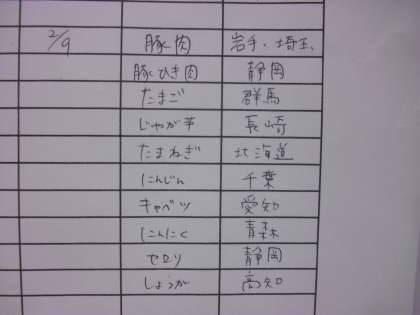 2/9 豚肉 岩手、埼玉、
豚ひき肉 静岡
たまご 群馬
じゃが芋 長崎
たまねぎ 北海道
にんじん 千葉
キャベツ 愛知
にんにく 青森
セロリ 静岡
しょうが 高知